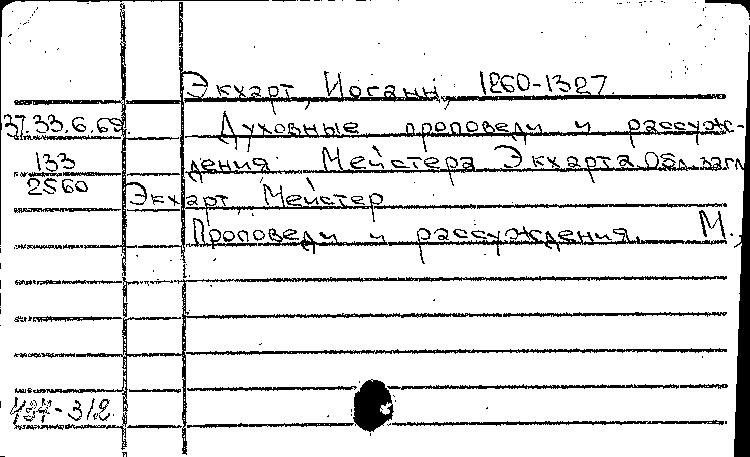 Экхарт, Иоганн, 1260-1327.
37.33.6.69. Духовные проповеди и рассуж-
133 дения Мейстера Экхарта. Обл. загл
2560 Экхарт, Мейстер
Проповеди и рассуждения. М.,
437-312